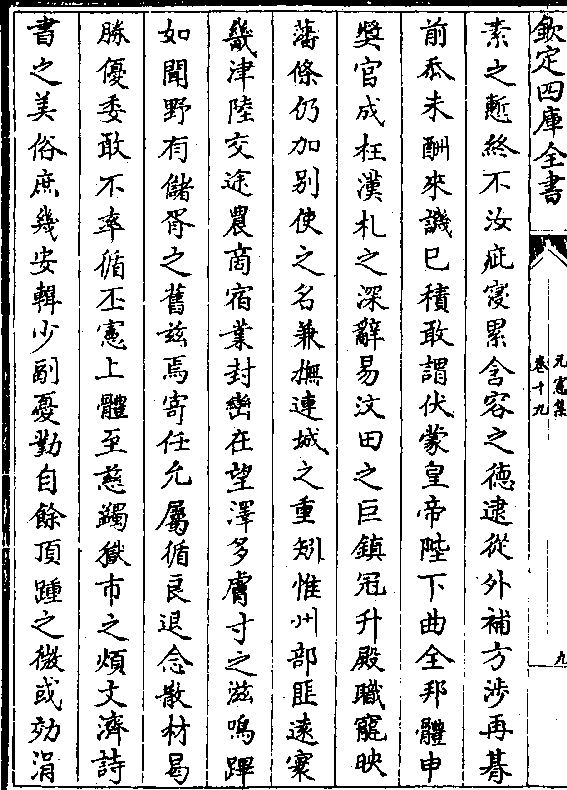 欽定四庫全書
元憲集
卷十九
九
素之慙終不汝疵寖累含容之德逮從外補方涉再朞
前忝未酬來譏已積敢謂伏蒙皇帝陛下曲全邦體申
奬官成枉漢札之深辭易汶田之巨鎮冠升殿職寵映
藩條仍加别使之名兼撫連城之重矧惟州部匪遠寰
畿津陸交途農商宿業封巒在望澤多膚寸之滋鳴蹕
如聞野有儲胥之舊兹焉寄任允屬循良退念散材曷
勝優委敢不率循丕憲上體至慈蠲獄市之煩文濟詩
書之美俗庶幾安輯少副憂勤自餘頂踵之微或効涓